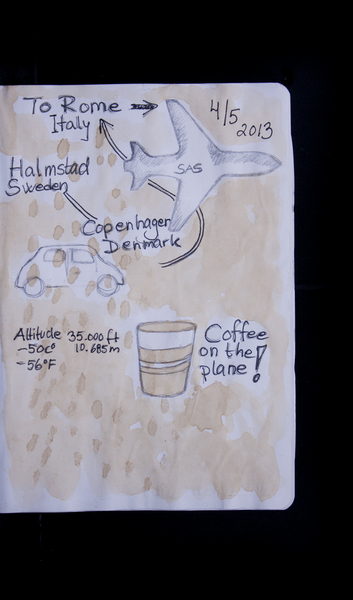 To Rome
Italy
4/5
2013
SAS
Halmstad
Sweden
Copenhagen
Denmark
Altitude 35.000 ft
-50C° 10.685m
-56°F
Coffee
on the
plane!